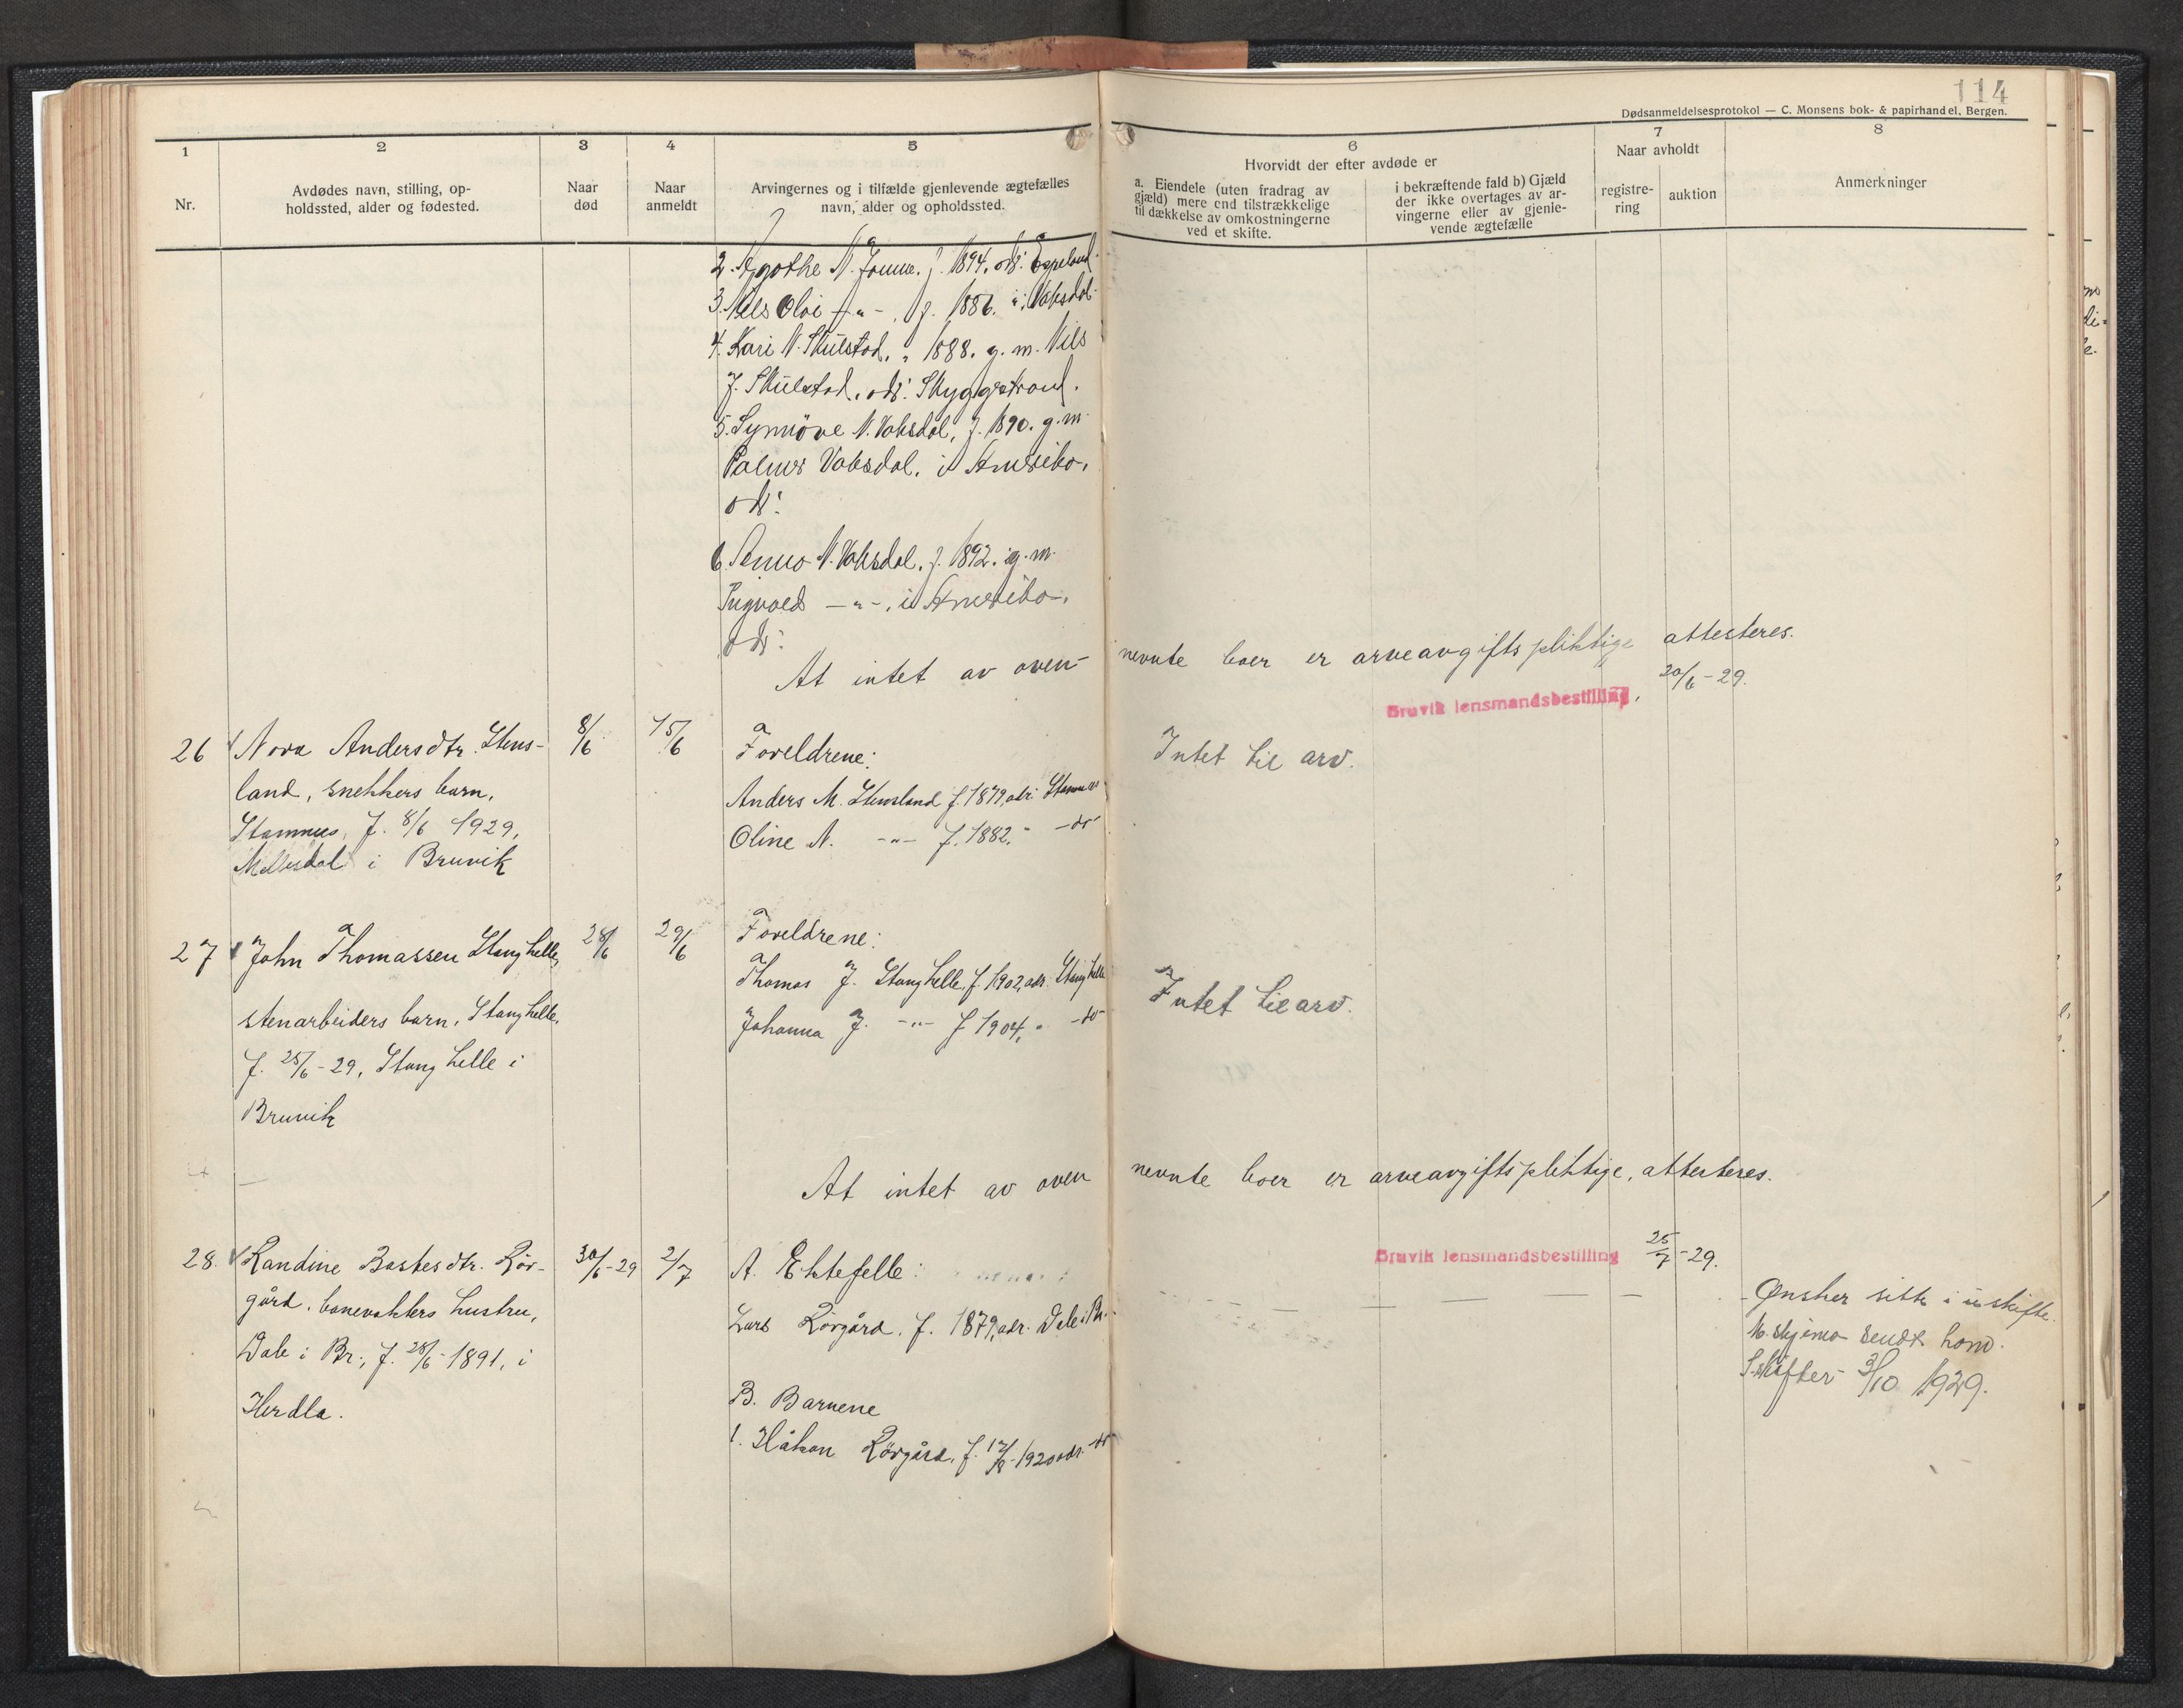 114
Dødsanmeldelsesprotokol — C. Monsens bok- & papirhandel, Bergen.
1
Nr.
2
Avdødes navn, stilling, op-
holdssted, alder og fødested.
3
Naar
død
4
Naar
anmeldt
5
Arvingernes og i tilfælde gjenlevende ægtefælles
navn, alder og opholdssted.
6
Hvorvidt der efter avdøde er
a. Eiendele (uten fradrag av
gjæld) mere end tilstrækkelige
til dækkelse av omkostningerne
ved et skifte.
i bekræftende fald b) Gjæld
der ikke overtages av ar-
vingerne eller av gjenle-
vende ægtefælle
7
Naar avholdt
registre-
ring
auktion
8
Anmerkninger
2. Agothe N. f. 1894, adr.
3. Nels Olai -"- , f. 1886. " Vaksdal
4. Kari N. Skulstad, " 1888. g. m. Nils
J. Skulstad, adr. Skyggestrand.
5. Synnöve N. Vaksdal, f. 1890. g. m.
Palmer Vaksdal, i Amerika,
adr:
6. N. Vaksdal, f. 1892. g. m.
Ingvald -"-, i Amerika,
adr:
At intet av oven- nevnte boer er arveavgiftspliktige attesteres.
Bruvik lensmandsbestilling, 20/6-29.
26 Nora Andersdtr. Stens-
land, snekkers barn,
Stamnes, f. 8/6 1929,
i Bruvik
8/6
15/6
Foreldrene:
Anders M. Stensland f. 1879, adr. Stamnes
Oline N. -"- f. 1882, " -do-
Intet til arv.
27 John Thomassen Stanghelle,
stenarbeiders barn, Stanghelle,
f. 25/6-29, Stanghelle i
Bruvik
28/6
29/6
Foreldrene:
Thomas J. Stanghelle, f. 1902, adr. Stanghelle
Johanna J. -"- f 1904, " -do-
Intet til arv.
At intet av oven nevnte boer er arveavgiftspliktige, attesteres.
Bruvik lensmandsbestilling 25/7-29.
28. Randine Bastesdtr. Rör-
gård, banevokters hustru,
Dale i Br., f. 28/6-1891, i
Herdla.
30/6-29
2/7
A. Ektefelle:
Lars Rörgård, f. 1879, adr. Dale i Br.
B. Barnene
1. Håkon Rörgård, f. 1920 adr. do
Ønsker sitte i uskifte.
sendt ham.
3/10 1929.